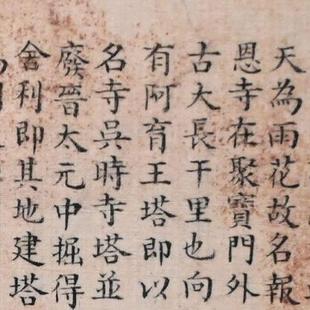 天為雨花故名報
恩寺在聚寶門外
古大長干里也向
有阿育王塔即以
名寺吳時寺塔並
廢晉太元中掘得
舍利即其地建塔